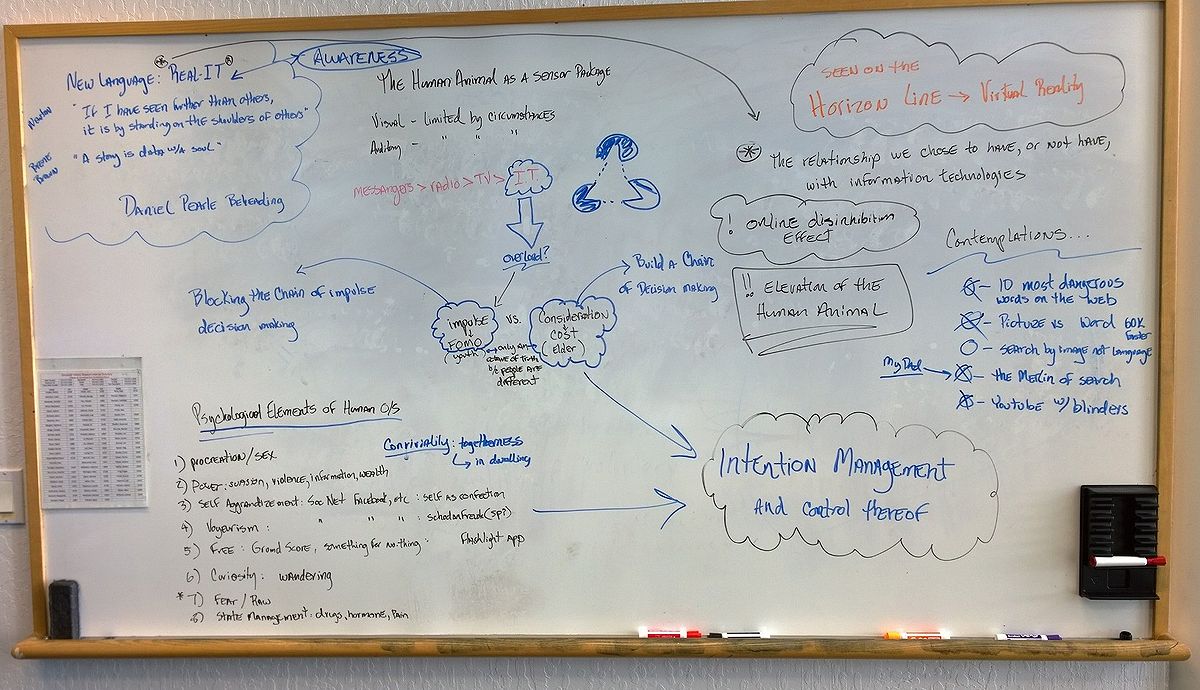 AWARENESS
New Language: REAL-IT
Newton
"If I have seen further than others,
it is by standing on the shoulders of others"
Brene
Brown
"A story is data w/ a soul"
Daniel Pearle Beheading
The Human Animal as a Sensor Package
Visual - Limited by circumstances
Auditory - " " "
messangers > radio > TV > IT
overload?
Blocking the Chain of impulse
decision making
impulse
FOMO
(youth)
vs.
Consideration
COST
(elder)
only an
octave of truth
b/c people are
different
Build a Chain
of Decision making
SEEN ON THE
Horizon Line → Virtual Reality
The relationship we chose to have, or not have,
with information technologies
! Online disinhibition
Effect
!! Elevation of the
Human Animal
Contemplations...
- 10 most dangerous
words on the web
- Picture vs Word 60K
faster
- search by image not language
My Dad
- the Merlin of search
- Youtube w/ blinders
Psychological Elements of Human O/S
Conviviality: togetherness
in dwelling
1) procreation/sex
2) Power: violence, information, wealth
3) Self Aggrandizement: Soc Net Facebook, etc : self as confection
4) Voyeurism: " " " schadenfreude (sp?)
5) Free: Ground Score, something for nothing: Flashlight App
6) Curiosity: wandering
*7) Fear / Raw
8) State Management: drugs, hormone, pain
Intention Management
And control thereof